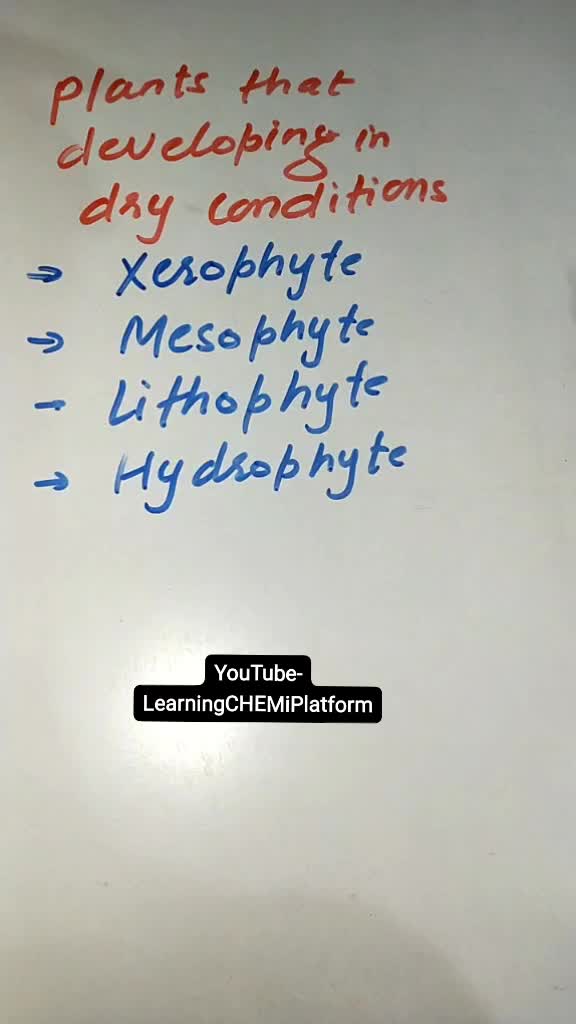 plants that
developing in
dry conditions
⇒ Xerophyte
→ Mesophyte
- Lithophyte
→ Hydrophyte
YouTube-
LearningCHEMiPlatform